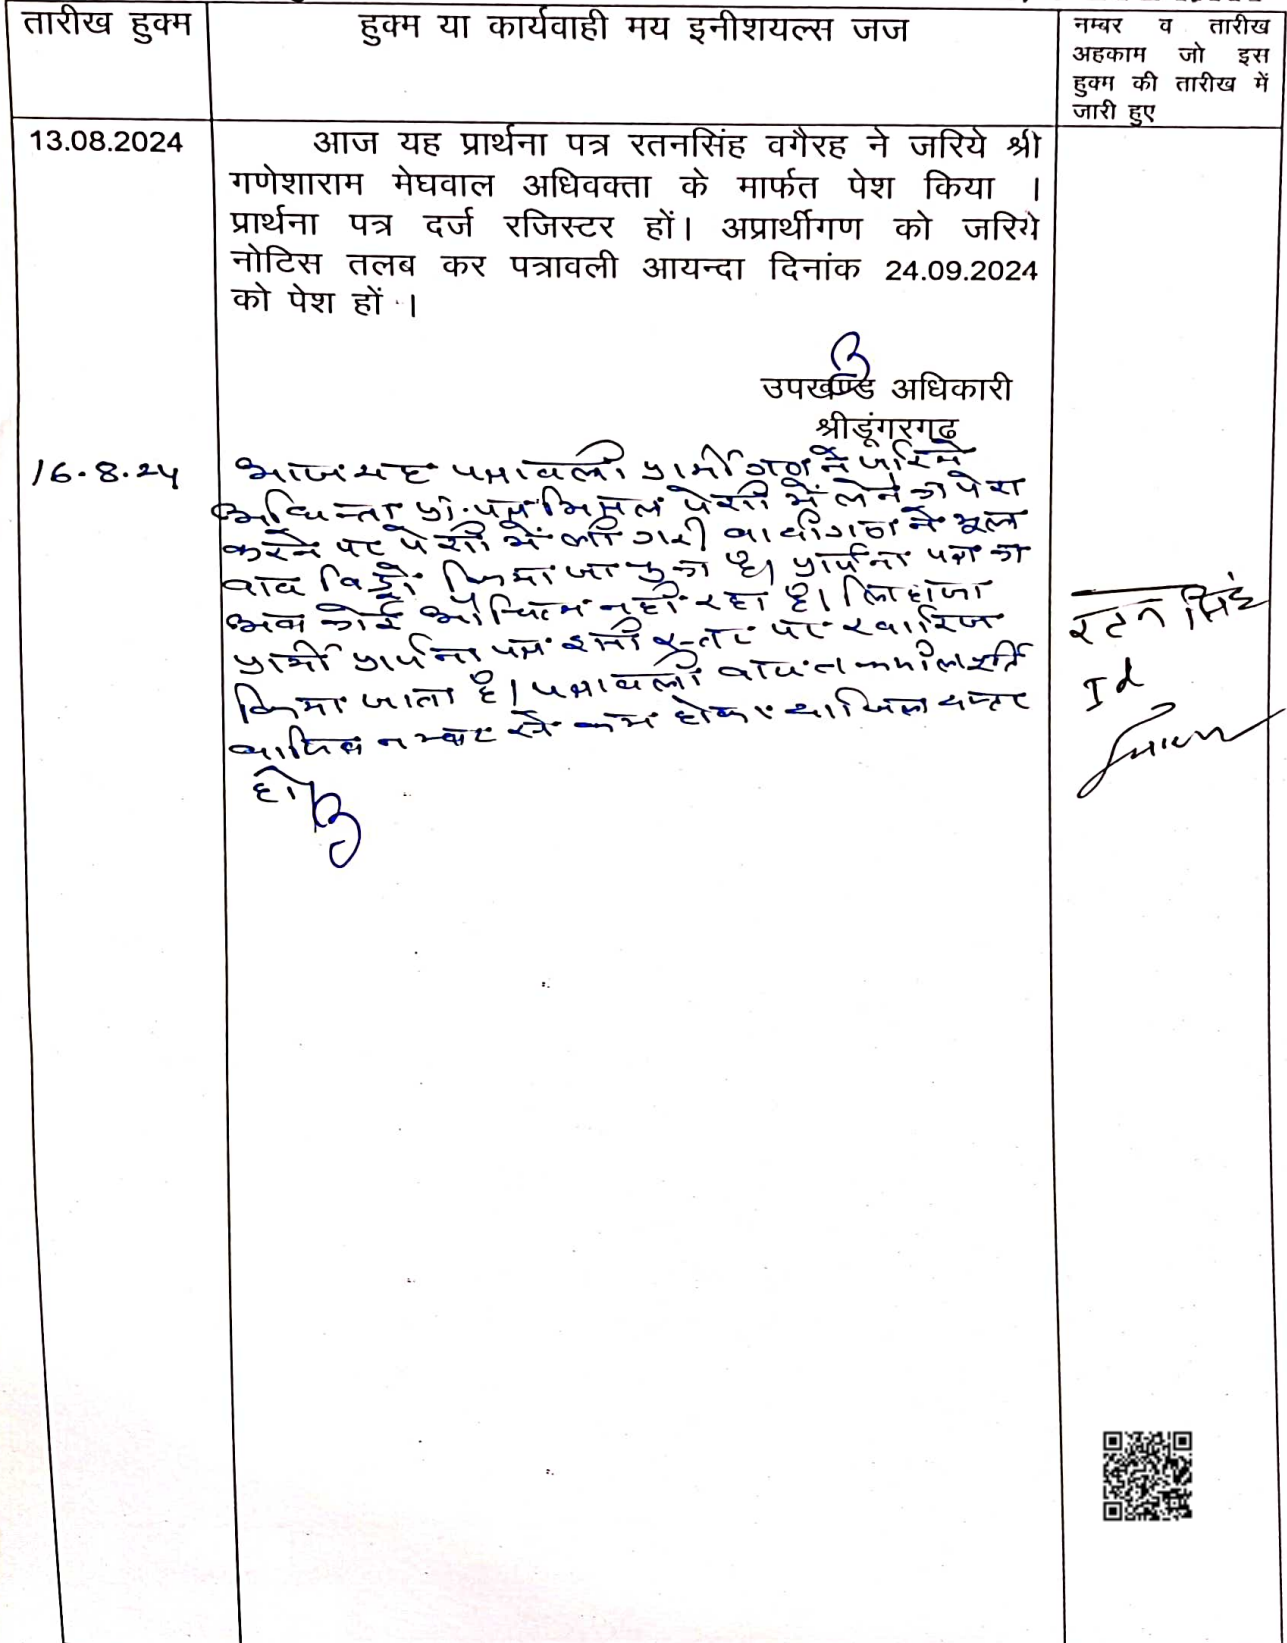 तारीख हुक्म
हुक्म या कार्यवाही मय इनीशयल्स जज
नम्बर व तारीख
अहकाम जो इस
हुक्म की तारीख में
जारी हुए
13.08.2024
आज यह प्रार्थना पत्र रतनसिंह वगैरह ने जरिये श्री
गणेशाराम मेघवाल अधिवक्ता के मार्फत पेश किया ।
प्रार्थना पत्र दर्ज रजिस्टर हों। अप्रार्थीगण को जरिये
नोटिस तलब कर पत्रावली आयन्दा दिनांक 24.09.2024
को पेश हों ।
उपखण्ड अधिकारी
श्रीडूंगरगढ
16.8.24
आज यह पत्रावली प्रार्थीगण ने जरिये
प्रा. पत्र पेशी में लेने का पेश
करने पर पेशी में ली गयी वादीगण ने मूल
वाद विड्रो किया जा चुका है। प्रार्थना पत्र का
अब कोई औचित्य नही रहा है। लिहाजा
प्रार्थी प्रार्थना पत्र इसी स्तर पर खारिज
किया जाता है। पत्रावली
नम्बर से कम होकर दाखिल दफ्तर
हो।
रतन सिंह
Id